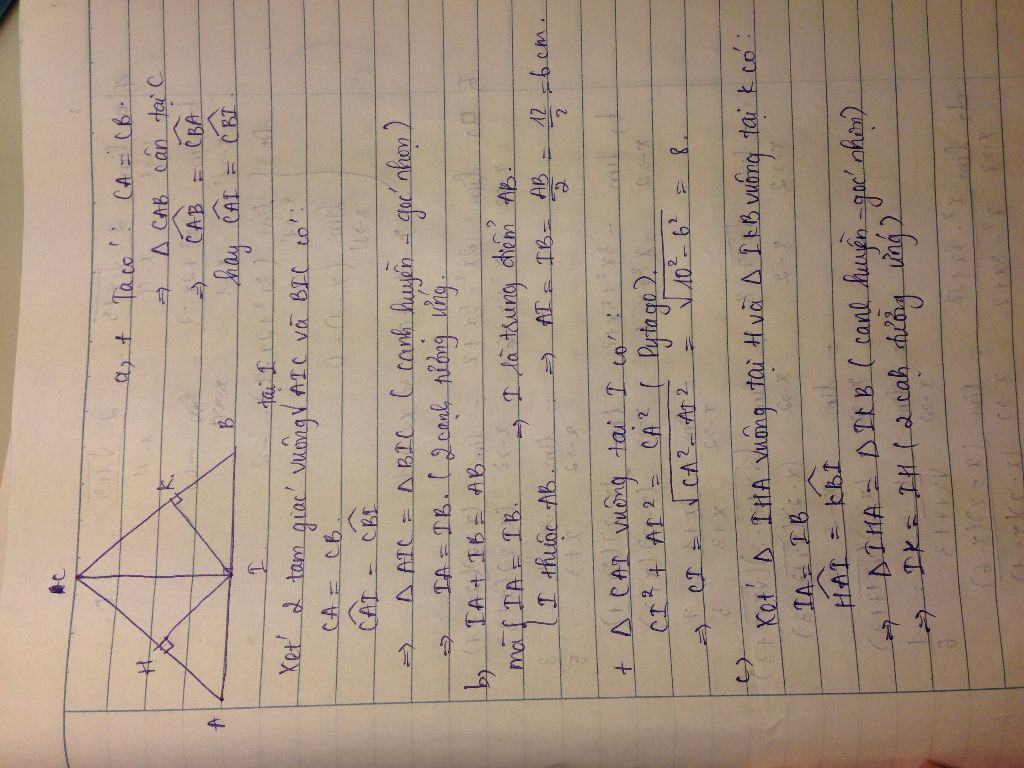 C
H
K
A
I
B
a, + Ta có: CA = CB.
=> Δ CAB cân tại C
=> \widehat{CAB} = \widehat{CBA}
hay \widehat{CAI} = \widehat{CBI}.
Xét 2 tam giác vuông tại I AIC và BIC có:
CA = CB
\widehat{CAI} = \widehat{CBI}
=> Δ AIC = Δ BIC (cạnh huyền - góc nhọn)
=> IA = IB. (2 cạnh tương ứng.
b) IA + IB = AB.
mà { IA = IB. => I là trung điểm AB.
{ I thuộc AB. => AI = IB = \frac{AB}{2} = \frac{12}{2} = 6 cm.
+ Δ CAI vuông tại I có:
CI² + AI² = CA² (Pytago).
=> CI = \sqrt{CA² - AI²} = \sqrt{10² - 6²} = 8.
c) Xét Δ IHA vuông tại H và Δ IKB vuông tại K có:
IA = IB
\widehat{HAI} = \widehat{KBI}
=> Δ IHA = Δ IKB (cạnh huyền - góc nhọn)
=> IK = IH (2 cạh tương ứng)